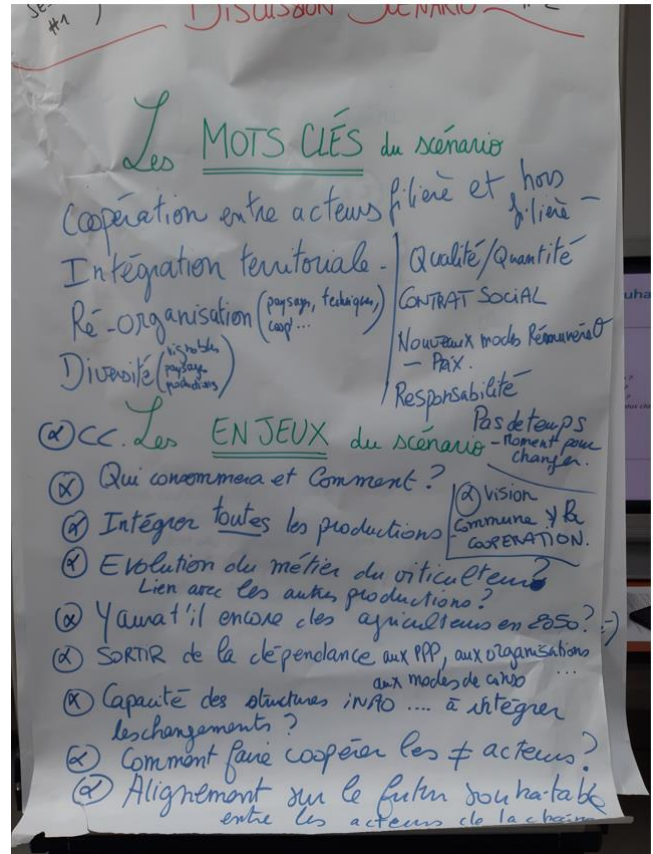 SES
#1
DISCUSSION SCÉNARIO
Les MOTS CLÉS du scénario
Coopération entre acteurs filière et hors filière -
Intégration territoriale -
Ré-organisation (paysages, techniques, coop!...
Diversité (vignobles
paysage
productions)
Qualité/Quantité
CONTRAT SOCIAL
Nouveaux modes Rémunérat°
- PRIX.
Responsabilité
Pas de temps
- Moment pour
changer.
α CC. Les ENJEUX du scénario
α Qui consommera et Comment ?
α Intégrer toutes les productions
α Vision
Commune /
COOPERATION.
α Evolution du métier du viticulteur ?
Lien avec les autres productions ?
α Y aura t'il encore des agriculteurs en 2050 ? :-)
α SORTIR de la dépendance aux PPP, aux organisations
aux modes de conso ...
α Capacité des structures iNAO .... à intégrer
les changements ?
α Comment faire coopérer les ≠ acteurs ?
α Alignement sur le futur souhaitable
entre les acteurs de la chaîne
uha